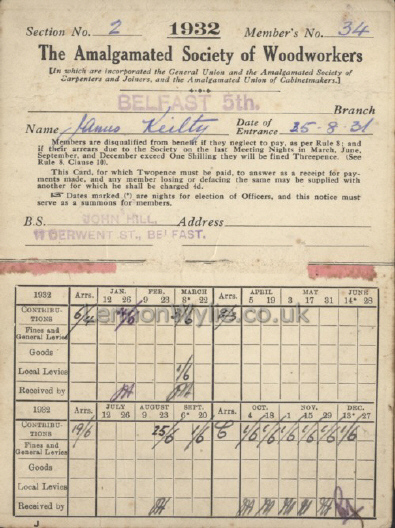 Section No. 2 1932 Member's No. 34
The Amalgamated Society of Woodworkers
[In which are incorporated the General Union and the Amalgamated Society of
Carpenters and Joiners, and the Amalgamated Union of Cabinetmakers.]
BELFAST 5th. Branch
Name James Keilty Date of Entrance 25-8-31
Members are disqualified from benefit if they neglect to pay, as per Rule 8; and
if their arrears due to the Society on the last Meeting Nights in March, June,
September, and December exceed One Shilling they will be fined Threepence. (See
Rule 8, Clause 10).
This Card, for which Twopence must be paid, to answer as a receipt for pay-
ments made, and any member losing or defacing the same may be supplied with
another for which he shall be charged 4d.
☞ Dates marked (*) are nights for election of Officers, and this notice must
serve as a summons for members.
B.S. JOHN HILL, Address
11 DERWENT ST., BELFAST.
1932 Arrs. JAN. 12 26 FEB. 9 23 MARCH 8* 22 Arrs. APRIL 5 19 MAY 3 17 31 JUNE 14* 28
CONTRIBUTIONS
Fines and General Levies
Goods
Local Levies 1/6
Received by
1932 Arrs. JULY 12 26 AUGUST 9 23 SEPT. 6* 20 Arrs. OCT. 4 18 NOV. 1 15 29 DEC. 13* 27
CONTRIBUTIONS 19/6 25/6 1/6 C 1/6 1/6 1/6 1/6 1/6 1/6
Fines and General Levies
Goods
Local Levies
Received by
J